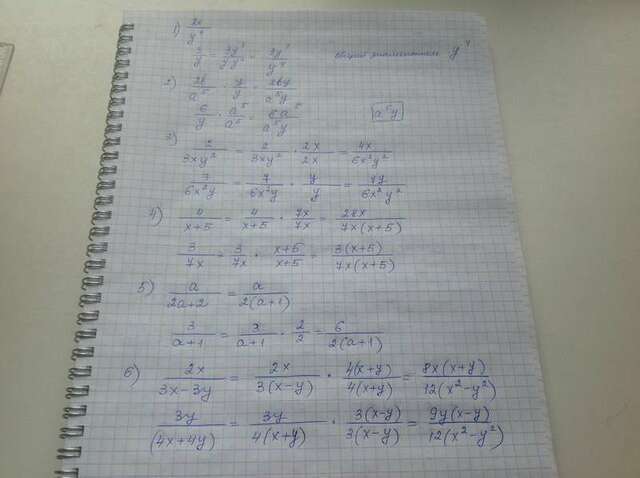 1) 2x/y⁴
3/y = 3y³/yy³ = 3y³/y⁴ общий знаменатель y⁴
2) 2b/a⁵ · y/y = 2by/a⁵y
6/y · a⁵/a⁵ = 6a⁵/a⁵y a⁵y
3) 2/3xy² = 2/3xy² · 2x/2x = 4x/6x²y²
7/6x²y = 7/6x²y · y/y = 7y/6x²y²
4) 4/x+5 = 4/x+5 · 7x/7x = 28x/7x(x+5)
3/7x = 3/7x · x+5/x+5 = 3(x+5)/7x(x+5)
5) a/2a+2 = a/2(a+1)
3/a+1 = 3/a+1 · 2/2 = 6/2(a+1)
6) 2x/3x-3y = 2x/3(x-y) · 4(x+y)/4(x+y) = 8x(x+y)/12(x²-y²)
3y/(4x+4y) = 3y/4(x+y) · 3(x-y)/3(x-y) = 9y(x-y)/12(x²-y²)